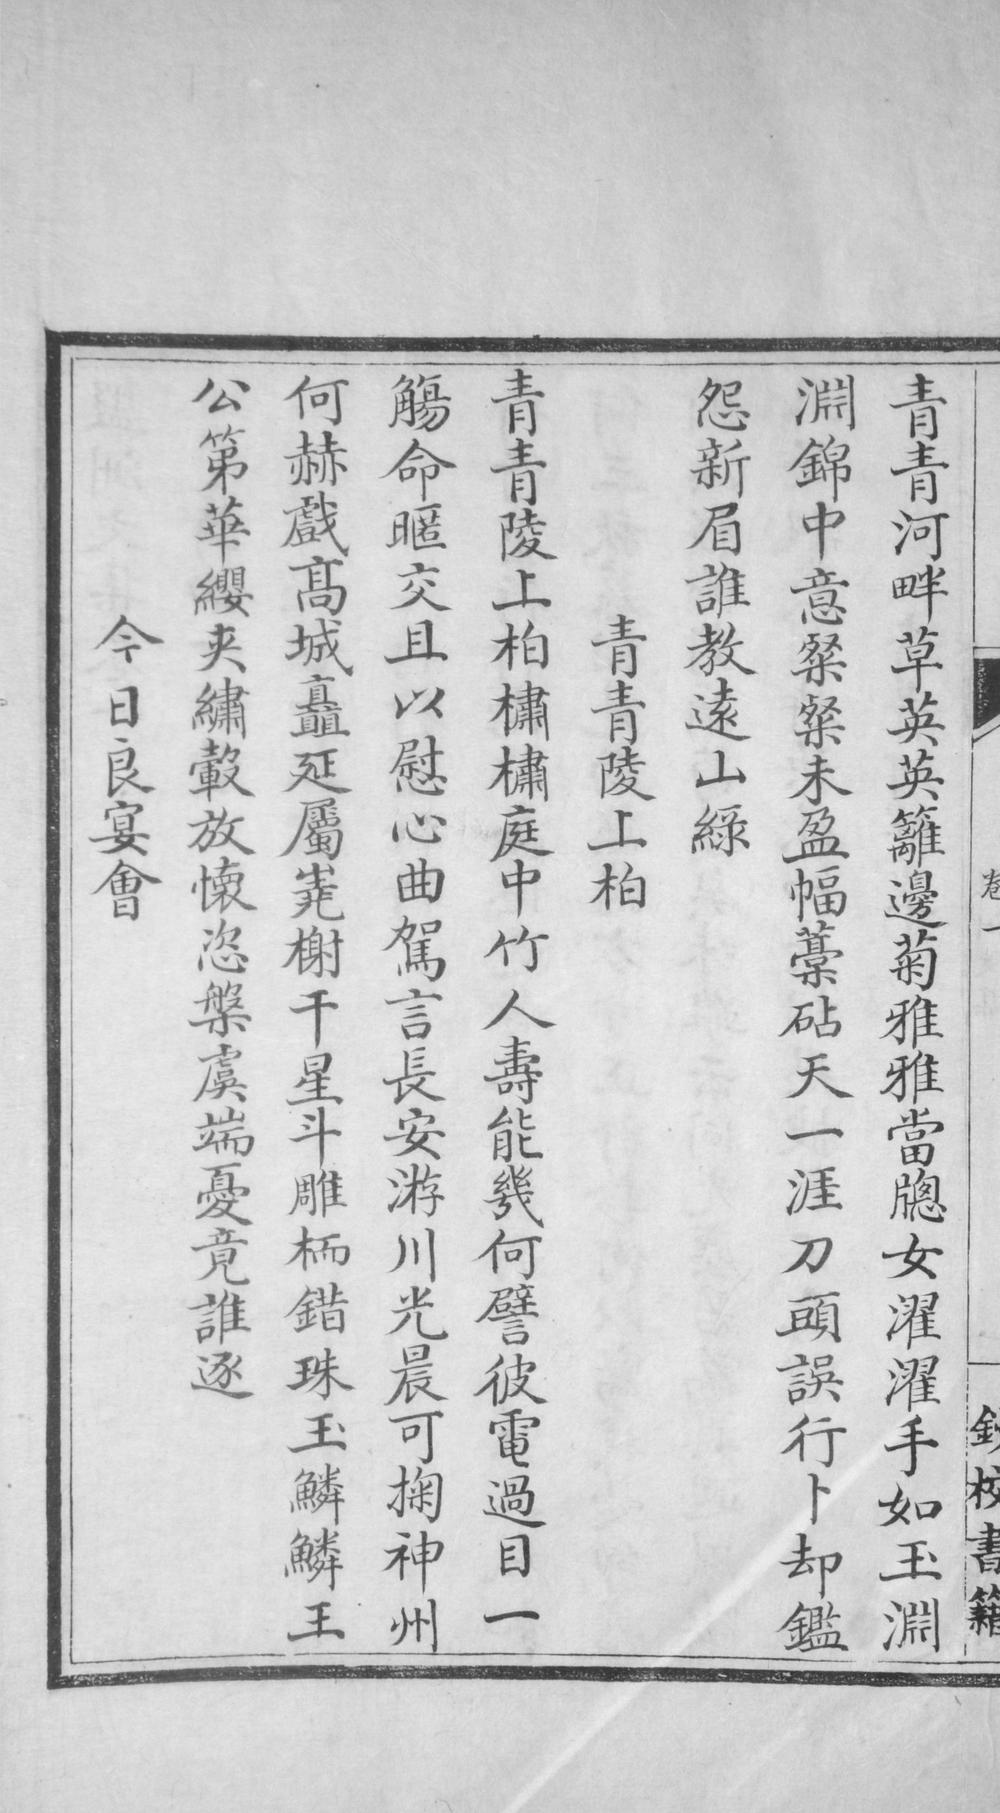 卷一
鈔校書籍
青青河畔草英英籬邊菊雅雅當牕女濯濯手如玉淵
淵錦中意粲粲未盈幅藁砧天一涯刀頭誤行卜却鑑
怨新眉誰教遠山綠
青青陵上柏
青青陵上柏橚橚庭中竹人壽能幾何譬彼電過目一
觴命暱交且以慰心曲駕言長安游川光晨可掬神州
何赫戲高城矗延屬嶤榭干星斗雕栭錯珠玉鱗鱗王
公第華纓夾繡轂放懷恣槃虞端憂竟誰逐
今日良宴會